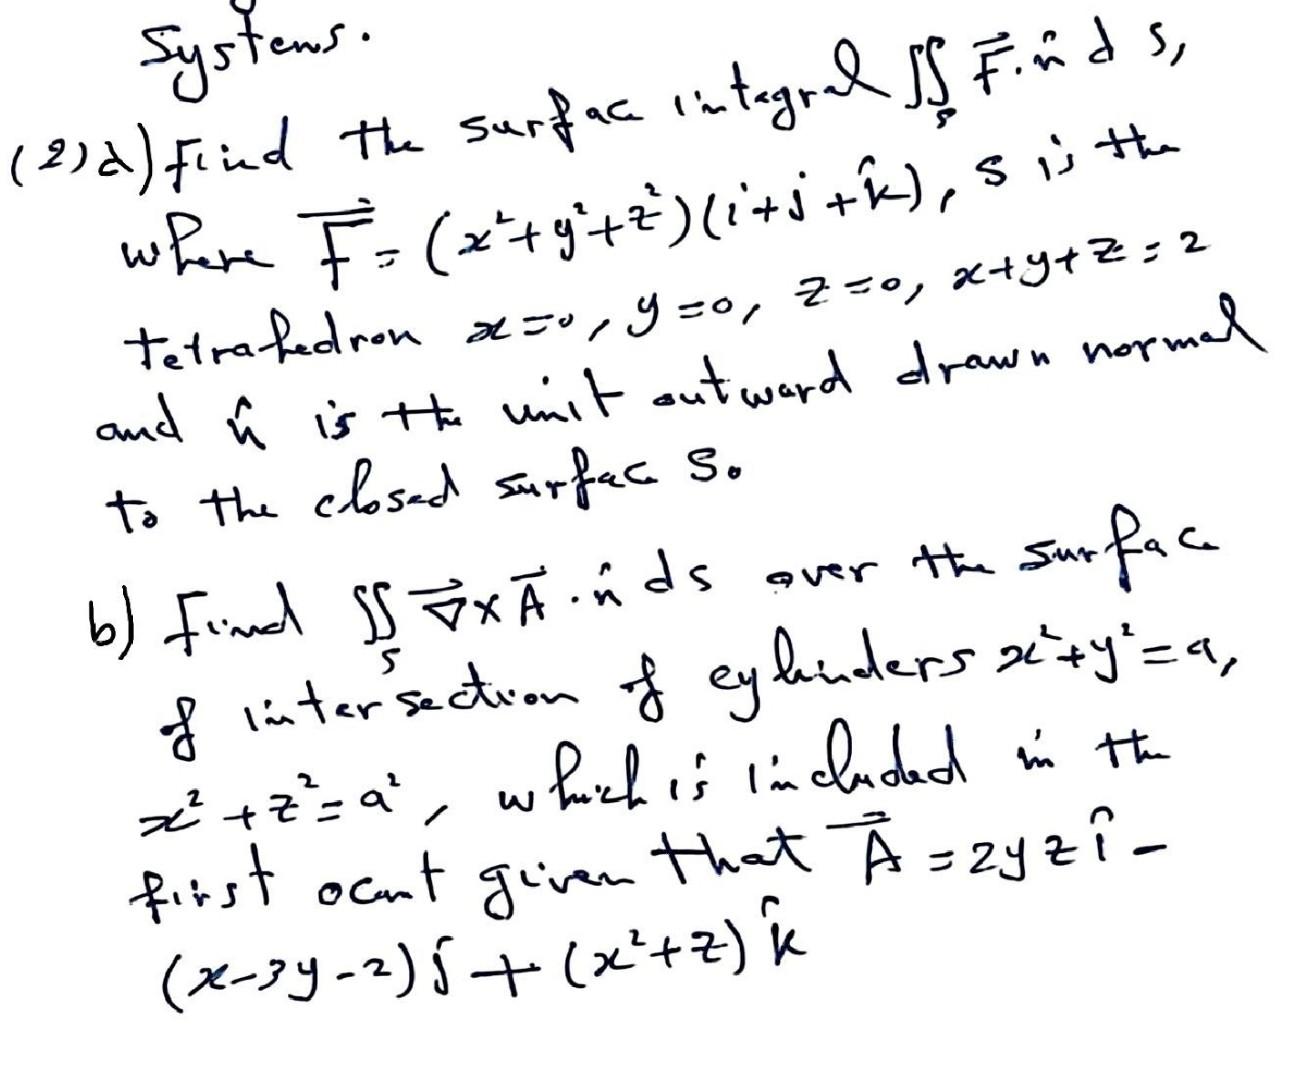 Systems.
(2)a) Find the surfac integral ∬_S F⃗.n̂ d s,
where F⃗ = (x²+y²+z²)(i+j+k̂), s is the
tetrahedron x=0, y=0, z=0, x+y+z=2
and n̂ is the unit outward drawn normal
to the closed surfac S.
b) Find ∬_S ∇⃗×A⃗.n̂ ds over the surfac
of intersection of cylinders x²+y²=a,
x²+z²=a², which is included in the
first ocant given that A⃗ = 2yz î -
(x-3y-2)j + (x²+z) k̂